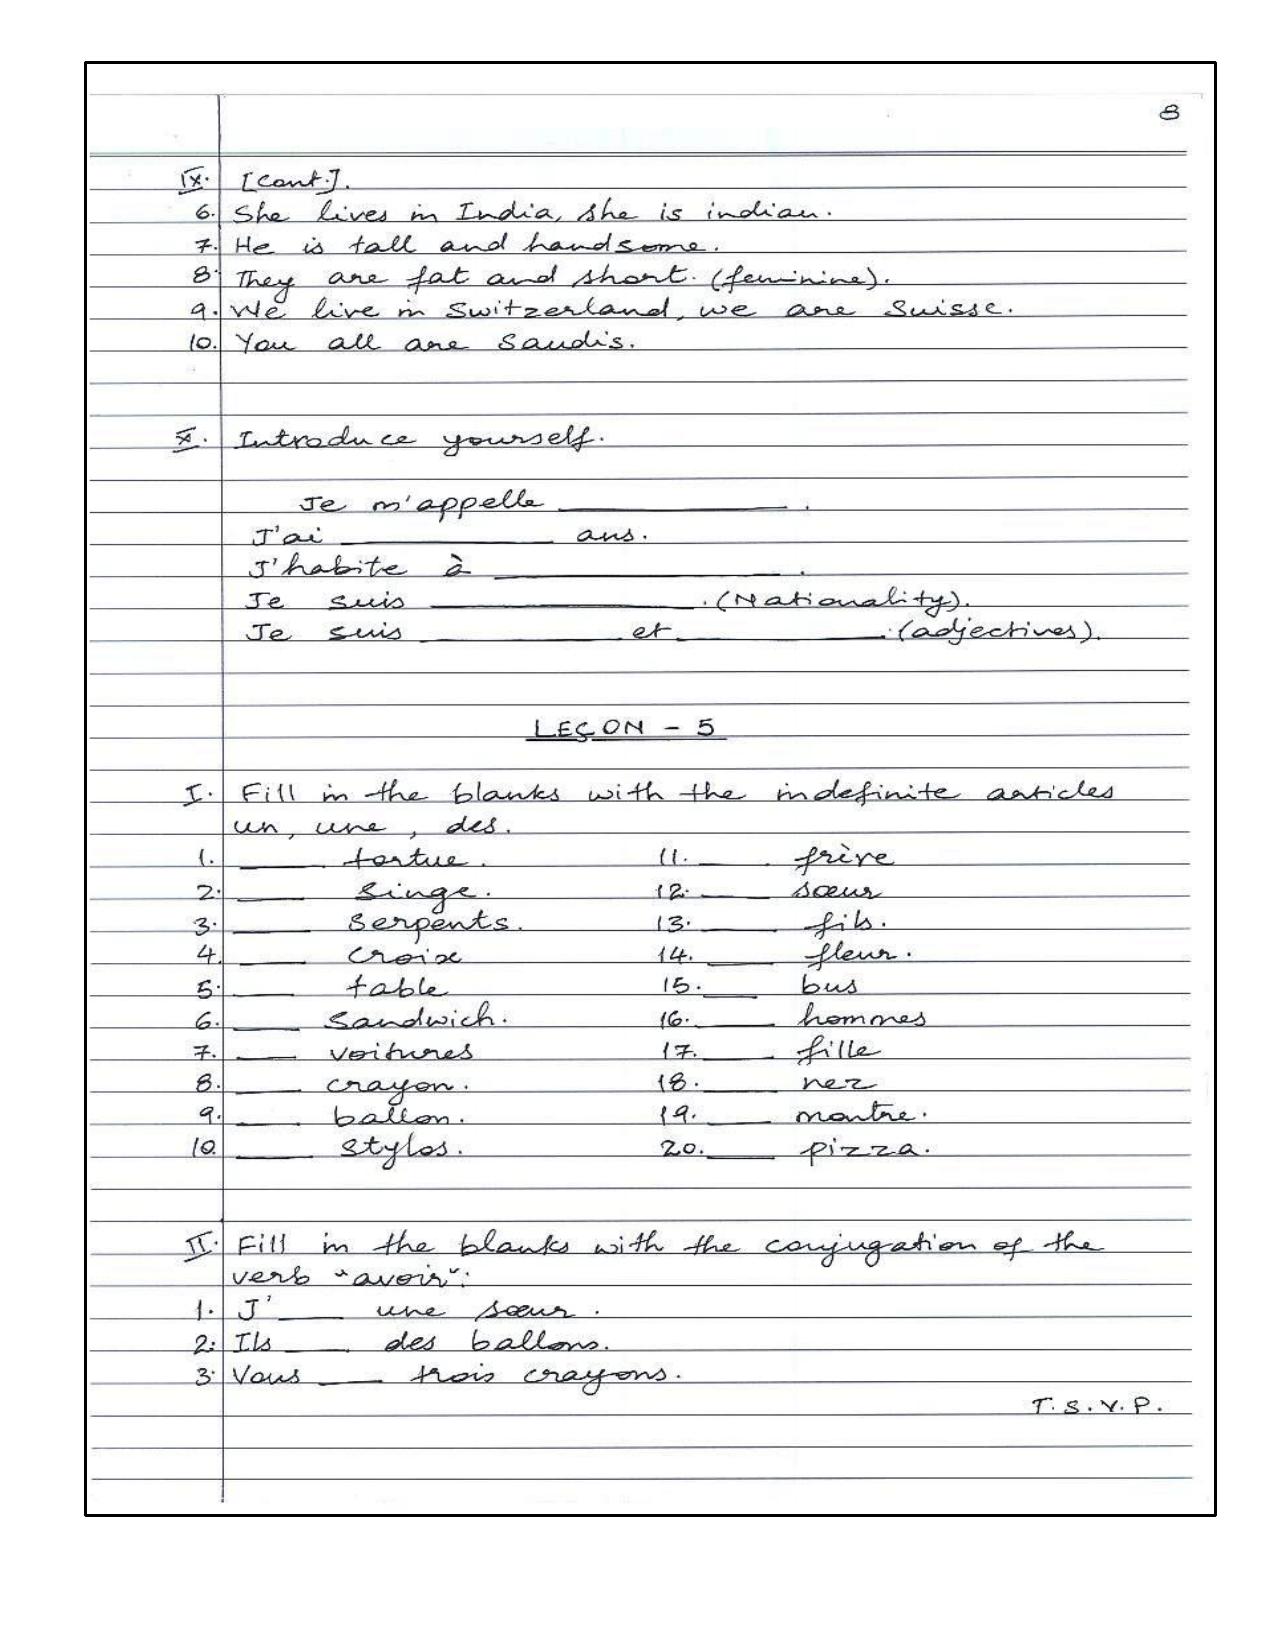 8
IX. [Cont.].
6. She lives in India, she is indian.
7. He is tall and handsome.
8. They are fat and short. (feminine).
9. We live in Switzerland, we are Suisse.
10. You all are Saudis.
X. Introduce yourself.
Je m'appelle __________ .
J'ai __________ ans.
J'habite à __________ .
Je suis __________ . (Nationality).
Je suis __________ et __________ . (adjectives).
LEÇON - 5
I. Fill in the blanks with the indefinite articles
un, une, des.
1. ____ tortue. 11. ____ frère
2. ____ Singe. 12. ____ sœur
3. ____ Serpents. 13. ____ fils.
4. ____ croix 14. ____ fleur.
5. ____ table 15. ____ bus
6. ____ Sandwich. 16. ____ hommes
7. ____ voitures 17. ____ fille
8. ____ crayon. 18. ____ nez
9. ____ ballon. 19. ____ montre.
10. ____ Stylos. 20. ____ pizza.
II. Fill in the blanks with the conjugation of the
verb "avoir":
1. J' ____ une sœur.
2. Ils ____ des ballons.
3. Vous ____ trois crayons.
T.S.V.P.